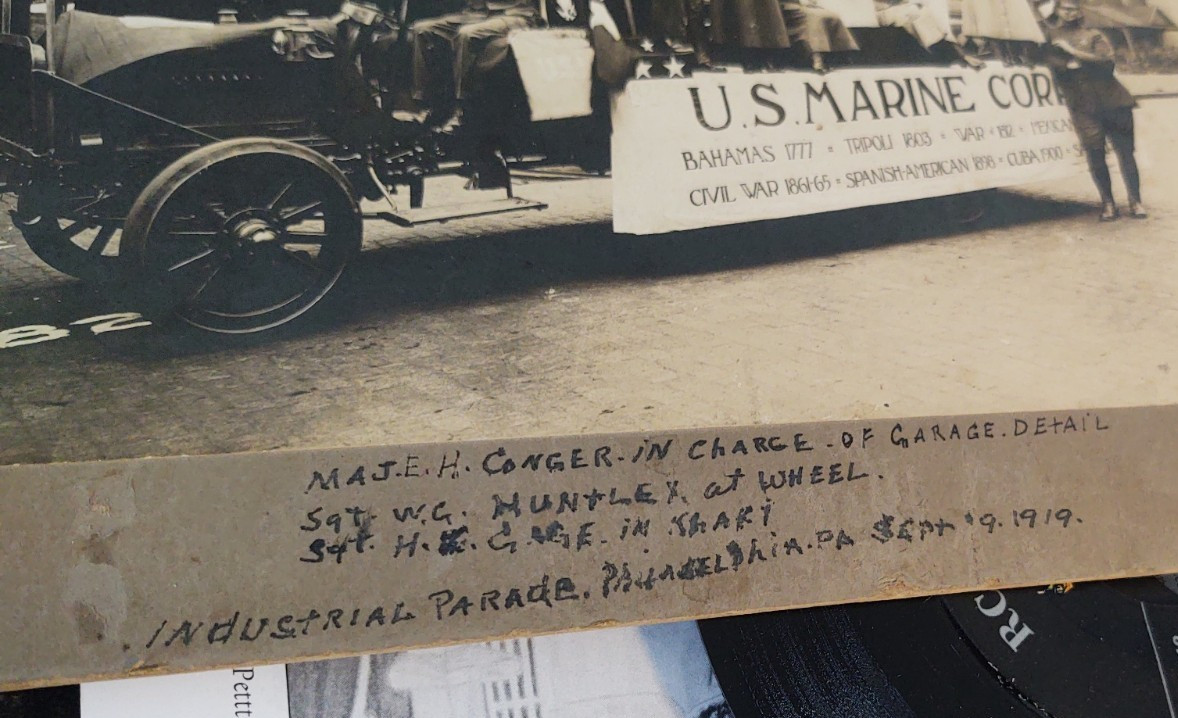 U.S. MARINE COR
BAHAMAS 1777 • TRIPOLI 1803 • WAR • 1812 • MEXICAN
CIVIL WAR 1861-65 • SPANISH-AMERICAN 1898 • CUBA 1900 • S
82
MAJ. E. H. CONGER. IN CHARGE. OF GARAGE. DETAIL
Sgt. W.G. HUNTLEY. at WHEEL.
Sgt. H. K. GAGE. IN KHAKI
INDUSTRIAL PARADE. PHILADELPHIA. PA SEPT 19. 1919.
RC
Pettt